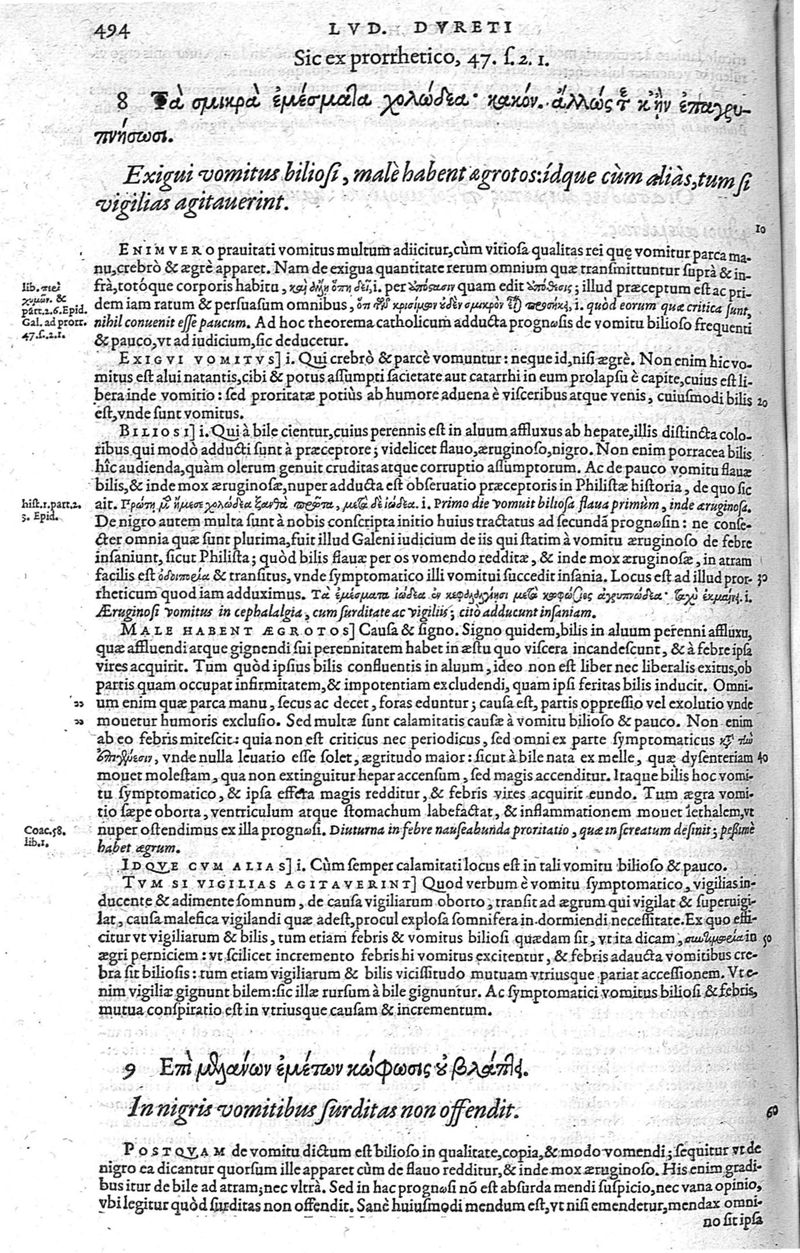 494
LVD. DVRETI
Sic ex prorrhetico, 47. ſ. 2. 1.
8 Τὰ σμικρὰ ἐμέσματα χολώδεα· κακόν. ἄλλως τε κἢν ἐπαγρυ-
πνήσωσι.
Exigui vomitus bilioſi, malè habent ægrotos: ídque cùm aliàs, tum ſi
vigilias agitauerint.
10
ENIMVERO prauitati vomitus multum adiicitur, cùm vitioſa qualitas rei quę vomitur parca ma-
nu, crebrò & ægrè apparet. Nam de exigua quantitate rerum omnium quæ tranſmittuntur ſuprà & in-
frà, totóque corporis habitu, καὶ ὅπη δεῖ, i. per quam edit illud præceptum eſt ac pri-
lib. περὶ
χυμῶν. &
part. 2. 6. Epid.
Gal. ad prorr.
47. ſ. 2. 1.
dem iam ratum & perſuaſum omnibus, i. quòd eorum quæ critica ſunt,
nihil conuenit eſſe paucum. Ad hoc theorema catholicum adducta prognωſis de vomitu bilioſo frequenti
& pauco, vt ad iudicium, ſic deducetur.
EXIGVI VOMITVS] i. Qui crebrò & parcè vomuntur: neque id, niſi ægrè. Non enim hic vo-
mitus eſt alui natantis, cibi & potus aſſumpti ſacietate aut catarrhi in eum prolapſu è capite, cuius eſt li-
bera inde vomitio: ſed proritatæ potiùs ab humore aduena è viſceribus atque venis, cuiuſmodi bilis
20
eſt, vnde ſunt vomitus.
BILIOSI] i. Qui à bile cientur, cuius perennis eſt in aluum affluxus ab hepate, illis diſtincta colo-
ribus qui modò adducti ſunt à præceptore; videlicet flauo, æruginoſo, nigro. Non enim porracea bilis
hîc audienda, quàm olerum genuit cruditas atque corruptio aſſumptorum. Ac de pauco vomitu flauæ
bilis, & inde mox æruginoſæ, nuper adducta eſt obſeruatio præceptoris in Philiſtæ hiſtoria, de quo ſic
hiſt. 1. part. 2.
3. Epid.
ait. Πρώτη μὲν ἤμεσε χολώδεα ξανθὰ πρῶτα, μετὰ δὲ ἰώδεα. i. Primo die vomuit bilioſa flaua primùm, inde æruginoſa.
De nigro autem multa ſunt à nobis conſcripta initio huius tractatus ad ſecundã prognωſin: ne conſe-
cter omnia quæ ſunt plurima, fuit illud Galeni iudicium de iis qui ſtatim à vomitu æruginoſo de febre
inſaniunt, ſicut Philiſta; quòd bilis flauæ per os vomendo redditæ, & inde mox æruginoſæ, in atram
facilis eſt ὁδοιπορία & tranſitus, vnde ſymptomatico illi vomitui ſuccedit inſania. Locus eſt ad illud pror-
30
rheticum quod iam adduximus. Τὰ ἐμέσματα ἰώδεα ἐν κεφαλαλγίῃσι μετὰ κωφώσιος ἀγρυπνώδεα· ταχὺ ἐκμαίνει. i.
Æruginoſi vomitus in cephalalgia, cum ſurditate ac vigiliis; citò adducunt inſaniam.
MALE HABENT ÆGROTOS] Cauſa & ſigno. Signo quidem, bilis in aluum perenni affluxu,
quæ affluendi atque gignendi ſui perennitatem habet in æſtu quo viſcera incandeſcunt, & à febre ipſa
vires acquirit. Tum quòd ipſius bilis confluentis in aluum, ideo non eſt liber nec liberalis exitus, ob
partis quam occupat infirmitatem, & impotentiam excludendi, quam ipſi feritas bilis inducit. Omni-
um enim quæ parca manu, ſecus ac decet, foras eduntur; cauſa eſt, partis oppreſſio vel exolutio vnde
mouetur humoris excluſio. Sed multæ ſunt calamitatis cauſæ à vomitu bilioſo & pauco. Non enim
ab eo febris miteſcit: quia non eſt criticus nec periodicus, ſed omni ex parte ſymptomaticus
vnde nulla leuatio eſſe ſolet, ægritudo maior: ſicut à bile nata ex melle, quæ dyſenteriam
40
mouet moleſtam, qua non extinguitur hepar accenſum, ſed magis accenditur. Itaque bilis hoc vomi-
tu ſymptomatico, & ipſa effeta magis redditur, & febris vires acquirit eundo. Tum ægra vomi-
tio ſæpe oborta, ventriculum atque ſtomachum labefactat, & inflammationem mouet lethalem, vt
Coac. 58.
lib. 1.
nuper oſtendimus ex illa prognωſi. Diuturna in febre nauſeabunda proritatio, quæ in ſcreatum deſinit; peſſimè
habet ægrum.
IDQVE CVM ALIAS] i. Cùm ſemper calamitati locus eſt in tali vomitu bilioſo & pauco.
TVM SI VIGILIAS AGITAVERINT] Quod verbum è vomitu ſymptomatico, vigilias in-
ducente & adimente ſomnum, de cauſa vigiliarum oborto; tranſit ad ægrum qui vigilat & ſuperuigi-
lat, cauſa malefica vigilandi quæ adeſt, procul exploſa ſomnifera in dormiendi neceſſitate. Ex quo effi-
citur vt vigiliarum & bilis, tum etiam febris & vomitus bilioſi quædam ſit, vt ita dicam, in
50
ægri perniciem: vt ſcilicet incremento febris hi vomitus excitentur, & febris adaucta vomitibus cre-
bra ſit bilioſis: tum etiam vigiliarum & bilis viciſſitudo mutuam vtriuſque pariat acceſſionem. Vt e-
nim vigiliæ gignunt bilem: ſic illæ rurſum à bile gignuntur. Ac ſymptomatici vomitus bilioſi & febris,
mutua conſpiratio eſt in vtriuſque cauſam & incrementum.
9 Ἐπὶ μελάνων ἐμέτων κώφωσις οὐ βλάπτει.
In nigris vomitibus ſurditas non offendit.
60
POSTQVAM de vomitu dictum eſt bilioſo in qualitate, copia, & modo vomendi; ſequitur vt de
nigro ea dicantur quorſum ille apparet cùm de flauo redditur, & inde mox æruginoſo. His enim gradi-
bus itur de bile ad atram; nec vltrà. Sed in hac prognωſi nõ eſt abſurda mendi ſuſpicio, nec vana opinio,
vbi legitur quòd ſurditas non offendit. Sanè huiuſmodi mendum eſt, vt niſi emendetur, mendax omni-
no ſit ipſa